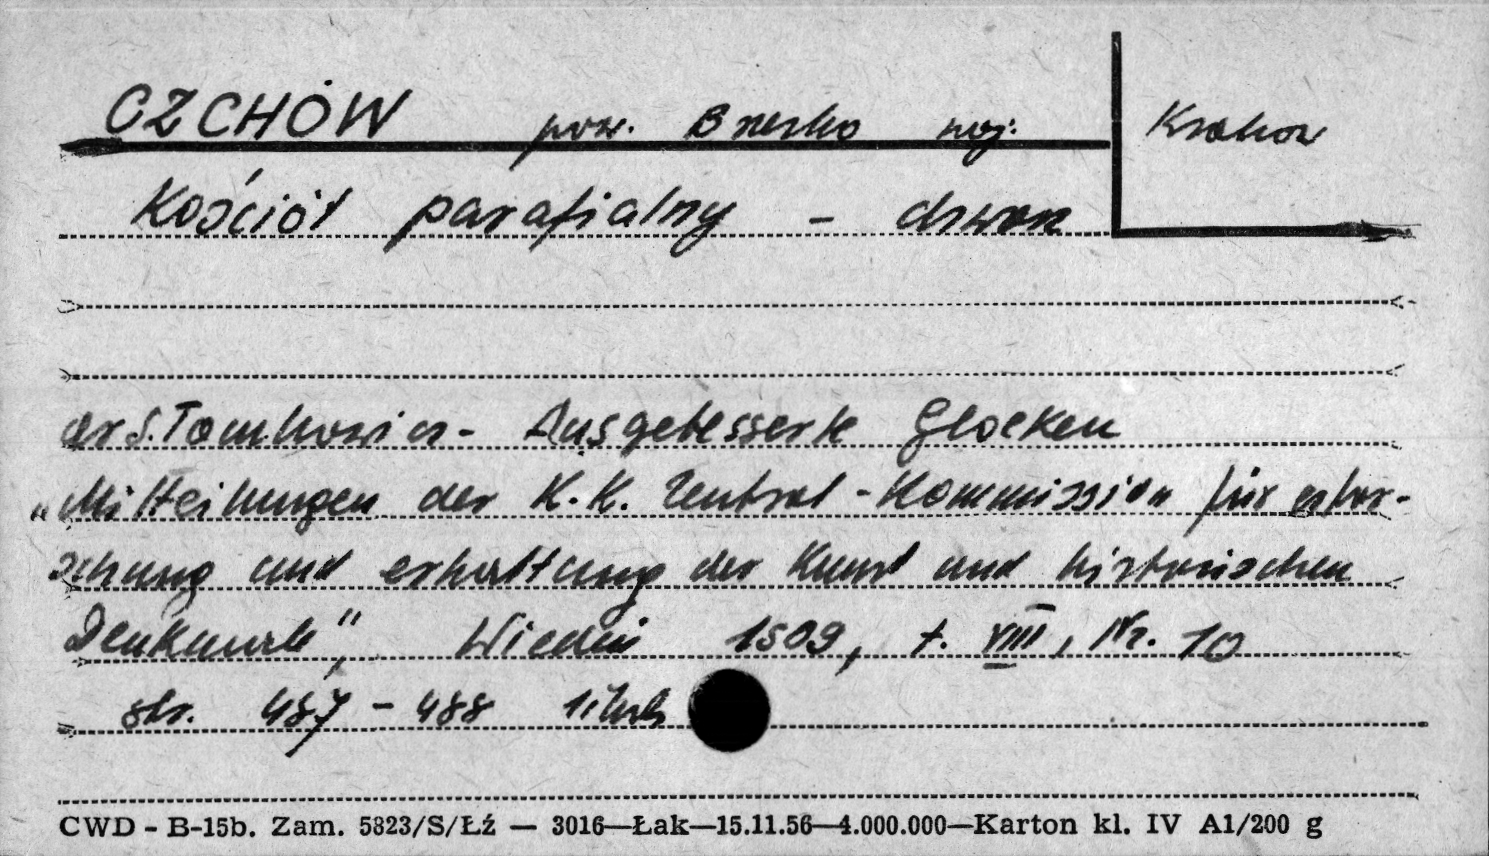 CZCHÓW pow. Brzesko woj. Kraków
Kościół parafialny - dzwon
dr S. Tomkowicz - Ausgebesserte Glocken
„Mitteilungen der K.K. Zentral-Kommission für erfor-
schung und erhaltung der Kunst und historischen
Denkmale", Wiedeń 1909, t. VIII, Nr. 10
str. 487-488
CWD - B-15b. Zam. 5823/S/Łź — 3016—Łak—15.11.56—4.000.000—Karton kl. IV A1/200 g